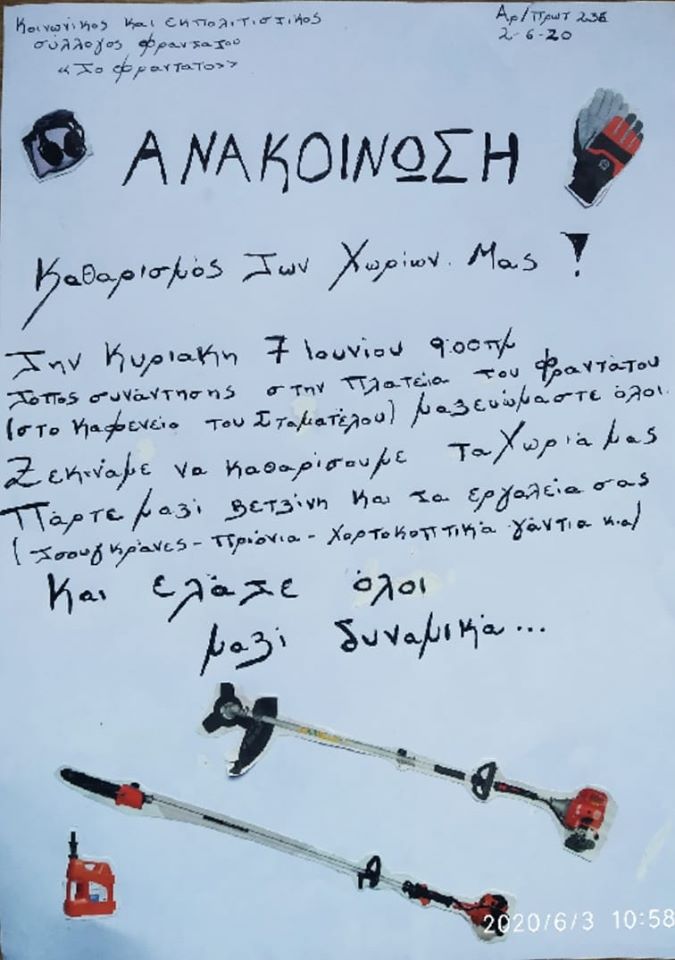 Κοινωνικος και εκπολιτιστικος
συλλογος φρανταtου
«Το φραντατο»
Αρ/Πρωτ
2-6-20
ΑΝΑΚΟΙΝΩΣΗ
Καθαρισμός Των Χωρίων. Μας !
Την Κυριακη 7 Ιουνίου 9:00πμ
Τόπος συνάντησης στην Πλατεία του Φραντάτου
(στο Καφενείο του Σταματέλου) μαζευώμαστε όλοι.
Ζεκινάμε να καθαρίσουμε Τα Χωριά μας
Πάρτε μαζί βετζίνη Και τα εργαλεία σας
(Τσουγκράνες - πριόνια - χορτοκοπτικά - γάντια κια)
Και ελάτε όλοι
μαζί δυναμικά...
2020/6/3 10:58